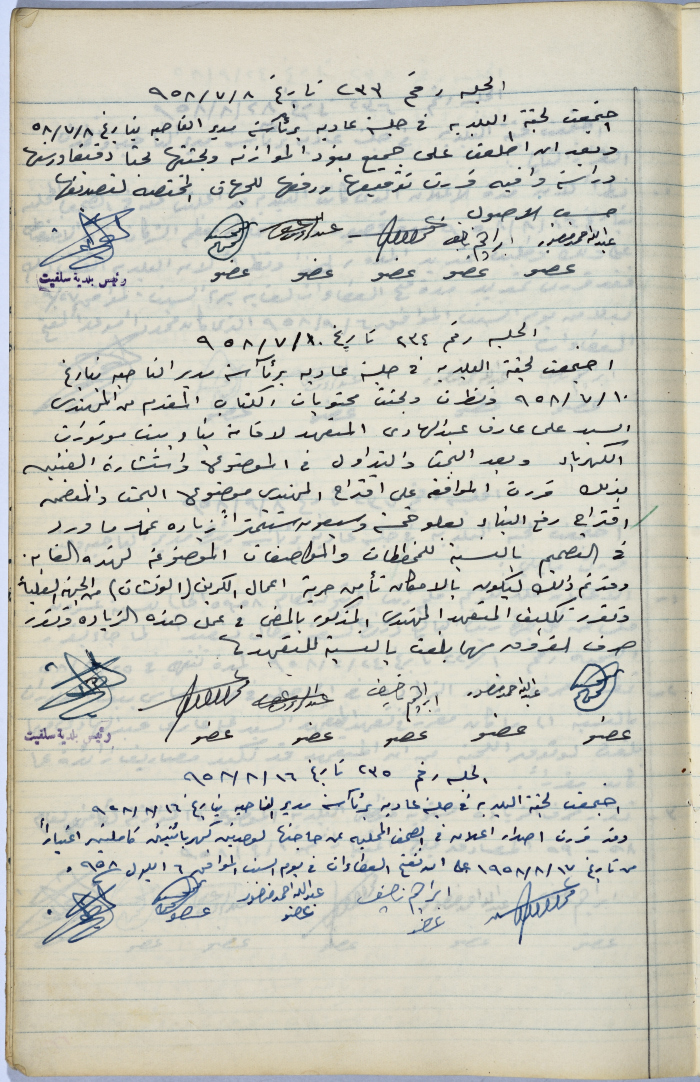 الجلسه رقم ٢٣٣ تاريخ ٩٥٨/٧/٨
اجتمعت لجنة البلديه في جلسة عاديه برئآسة مدير الناحيه بتاريخ ٥٨/٧/٨
وبعد ان اطلعت على جميع بنود الموازنه وبحثتها بحثا دقيقا ودرستها
دراسة وافيه قررت توقيعها ورفعها للجهات المختصه لتصديقها
حسب الاصول
عبدالله احمد منصور ابراهيم نصيف
عضو عضو عضو عضو عضو
رئيس بلدية سلفيت
الجلسه رقم ٢٣٤ تاريخ ٩٥٨/٧/١٠
اجتمعت لجنة البلديه في جلسة عاديه برئآسة مدير الناحيه بتاريخ
٩٥٨/٧/١٠ ونظرت وبحثت محتويات الكتاب المقدم من المهندس
السيد علي عارف عبدالهادي المتعهد لاقامة بناء بيت موتورات
الكهرباء وبعد البحث والتداول في الموضوع واستشارة الفنيين
بذلك قررت الموافقه على اقتراح المهندس موضوع البحث والمتضمنه
اقتراح رفع البناء بعلو خمسة وسبعون سنتمتراً زياده عما ورد
في التصميم بالنسبة للمخططات والمواصفات الموضوعة لهذه الغايه.
وقد تم ذلك ليكون بالامكان تأمين حرية اعمال الكرين (الونشات) من الجهة العلياء
وتقرر تكليف المتعهد المهندس المذكور بالمضي في عمل هذه الزياده وتقرر
صرف الفروق مهما بلغت بالنسبة للمتعهد بها
عبدالله احمد منصور ابراهيم نصيف
عضو عضو عضو عضو عضو
رئيس بلدية سلفيت
الجلسه رقم ٢٣٥ تاريخ ٩٥٨/٨/١٦
اجتمعت لجنة البلديه في جلسة عاديه برئآسة مدير الناحيه بتاريخ ٩٥٨/٨/١٦
وقد قررت اصدار اعلان في الصحف المحليه عن حاجتها لوحدتين كهربائيتين كاملتين اعتباراً
من تاريخ ١٩٥٨/٨/١٧ على ان تفتح العطاءات في يوم السبت الموافق ٦ ايلول ٩٥٨.
ابراهيم نصيف عبدالله احمد منصور
عضو عضو عضو